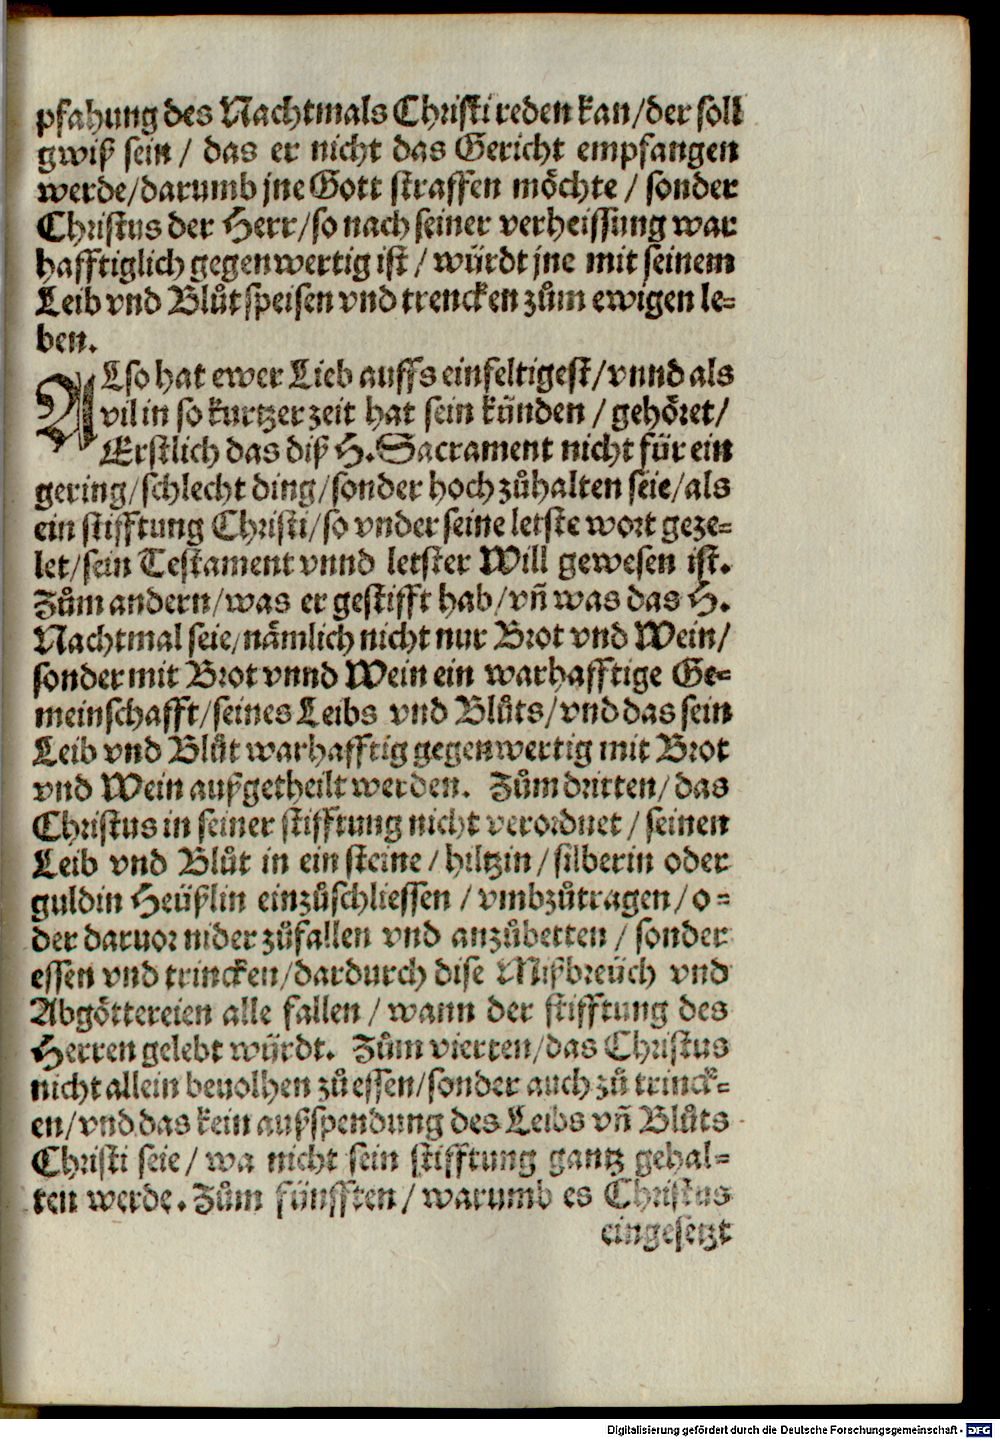 pfahung des Nachtmals Christi reden kan/der soll
gwiß sein/ das er nicht das Gericht empfangen
werde/darumb jne Gott straffen möchte/ sonder
Christus der Herr/so nach seiner verheissung war
hafftiglich gegenwertig ist/ würdt jne mit seinem
Leib vnd Blůt speisen vnd trencken zům ewigen le=
ben.
ALso hat ewer Lieb auffs einfeltigest/vnnd als
vil in so kurtzer zeit hat sein künden/ gehöret/
Erstlich das diß H. Sacrament nicht für ein
gering/schlecht ding/sonder hoch zůhalten seie/als
ein stifftung Christi/so vnder seine letste wort geze=
let/sein Testament vnnd letster Will gewesen ist.
Zům andern/was er gestifft hab/vñ was das H.
Nachtmal seie/nämlich nicht nur Brot vnd Wein/
sonder mit Brot vnnd Wein ein warhafftige Ge=
meinschafft/seines Leibs vnd Blůts/vnd das sein
Leib vnd Blůt warhafftig gegenwertig mit Brot
vnd Wein außgetheilt werden. Zům dritten/das
Christus in seiner stifftung nicht verordnet/ seinen
Leib vnd Blůt in ein steine/ hiltzin/ silberin oder
guldin Heüßlin einzůschliessen/ vmbzůtragen/ o=
der daruor nider zůfallen vnd anzůbetten/ sonder
essen vnd trincken/dardurch dise Mißbreüch vnd
Abgöttereien alle fallen/ wann der stifftung des
Herren gelebt würdt. Zům vierten/das Christus
nicht allein beuolhen zů essen/sonder auch zů trinck=
en/vnd das kein außspendung des Leibs vñ Blůts
Christi seie/ wa nicht sein stifftung gantz gehal=
ten werde. Zům fünfften/ warumb es Christus
eingesetzt
Digitalisierung gefördert durch die Deutsche Forschungsgemeinschaft - DFG